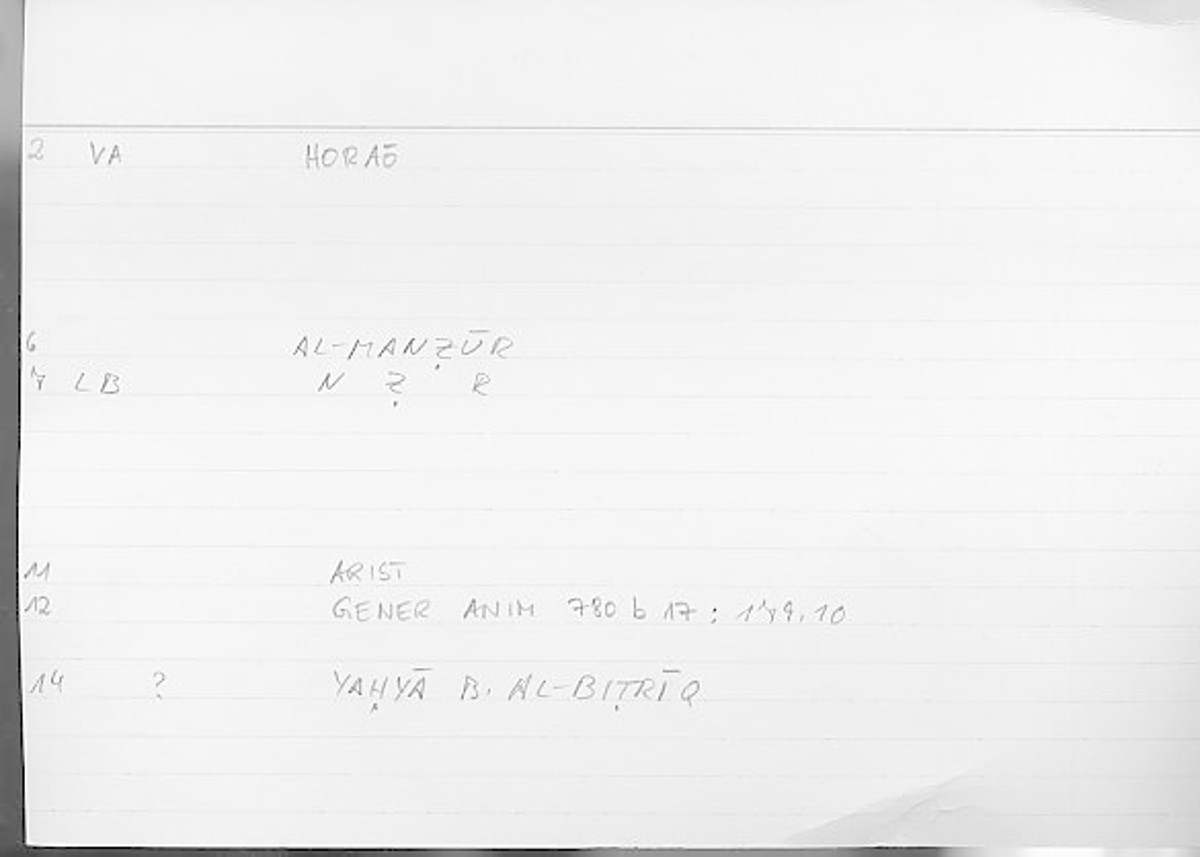 2 VA HORAŌ
6 AL-MANẒŪR
7 LB N Ẓ R
11 ARIST
12 GENER ANIM 780 b 17 : 179.10
14 ? YAḤYĀ B. AL-BIṬRĪQ